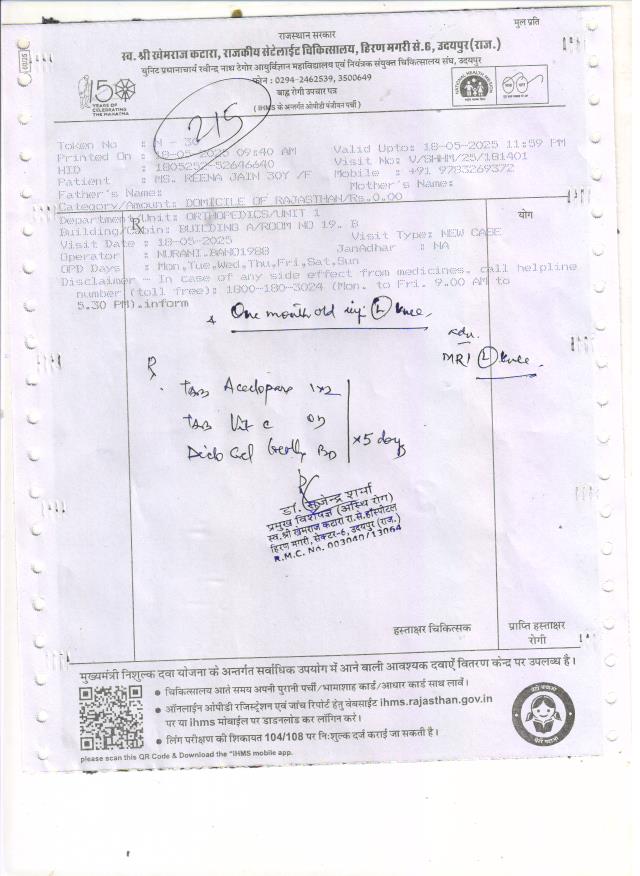 मुल प्रति
राजस्थान सरकार
स्व. श्री खेमराज कटारा, राजकीय सेटेलाईट चिकित्सालय, हिरण मगरी से.6, उदयपुर (राज.)
युनिट प्रधानाचार्य रवीन्द्र नाथ टेगोर आयुर्विज्ञान महाविद्यालय एवं नियंत्रक संयुक्त चिकित्सालय संघ, उदयपुर
फोन : 0294-2462539, 3500649
बाह्य रोगी उपचार पत्र
( IHMS के अन्तर्गत ओपीडी पंजीयन पर्ची )
150 YEARS OF CELEBRATING THE MAHATMA
NATIONAL HEALTH MISSION
215
Token No : N - 30
Printed On : 18-05-2025 09:40 AM Valid Upto: 18-05-2025 11:59 PM
HID : 1805252-52646640 Visit No: V/SHHM/25/181401
Patient : MS. REENA JAIN 30Y /F Mobile : +91 9783269372
Father's Name: Mother's Name:
Category/Amount: DOMICILE OF RAJASTHAN/Rs.0.00
Department/Unit: ORTHOPEDICS/UNIT 1
योग
Building/Cabin: BUILDING A/ROOM NO 19. B
Visit Date : 18-05-2025 Visit Type: NEW CASE
Operator : NURANI.BANO1988 JanAdhar : NA
OPD Days : Mon,Tue,Wed,Thu,Fri,Sat,Sun
Disclaimer - In case of any side effect from medicines. call helpline
number (toll free): 1800-180-3024 (Mon. to Fri. 9.00 AM to
5.30 PM).inform
One month old inj. (L) knee
Adv.
MRI (L) knee.
Rx
Tab Aceclopara 1x2
Tab Vit c OD
Diclo Gel locally BD
x5 days
डॉ. सुजेन्द्र शर्मा
प्रमुख विशेषज्ञ (अस्थि रोग)
स्व.श्री खेमराज कटारा रा.से.हॉस्पीटल
हिरण मगरी, सेक्टर-6, उदयपुर (राज.)
R.M.C. No. 003040/13064
हस्ताक्षर चिकित्सक
प्राप्ति हस्ताक्षर
रोगी
मुख्यमंत्री निशुल्क दवा योजना के अन्तर्गत सर्वाधिक उपयोग में आने वाली आवश्यक दवाऐं वितरण केन्द्र पर उपलब्ध है।
• चिकित्सालय आते समय अपनी पुरानी पर्ची/भामाशाह कार्ड/आधार कार्ड साथ लावें।
• ऑनलाईन ओपीडी रजिस्ट्रेशन एवं जांच रिपोर्ट हेतु वेबसाईट ihms.rajasthan.gov.in
पर या ihms मोबाईल पर डाउनलोड कर लॉगिन करें।
• लिंग परीक्षण की शिकायत 104/108 पर नि:शुल्क दर्ज कराई जा सकती है।
please scan this QR Code & Download the "IHMS mobile app.